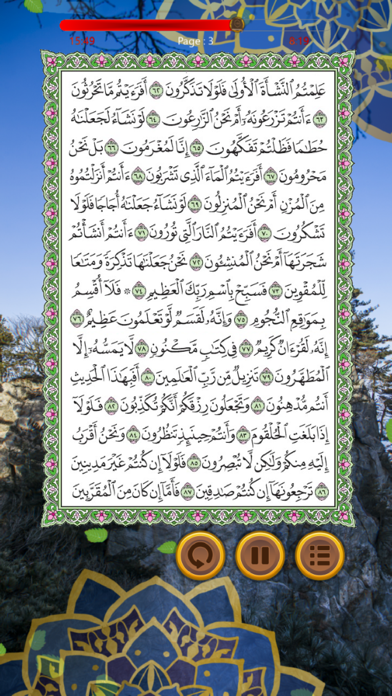 15:49 Page : 3
عَلِمْتُمُ ٱلنَّشْأَةَ ٱلْأُولَىٰ فَلَوْلَا تَذَكَّرُونَ ٦٢ أَفَرَءَيْتُم مَّا تَحْرُثُونَ
٦٣ ءَأَنتُمْ تَزْرَعُونَهُۥٓ أَمْ نَحْنُ ٱلزَّٰرِعُونَ ٦٤ لَوْ نَشَآءُ لَجَعَلْنَٰهُ
حُطَٰمًا فَظَلْتُمْ تَفَكَّهُونَ ٦٥ إِنَّا لَمُغْرَمُونَ ٦٦ بَلْ نَحْنُ
مَحْرُومُونَ ٦٧ أَفَرَءَيْتُمُ ٱلْمَآءَ ٱلَّذِى تَشْرَبُونَ ٦٨ ءَأَنتُمْ أَنزَلْتُمُوهُ
مِنَ ٱلْمُزْنِ أَمْ نَحْنُ ٱلْمُنزِلُونَ ٦٩ لَوْ نَشَآءُ جَعَلْنَٰهُ أُجَاجًا فَلَوْلَا
تَشْكُرُونَ ٧٠ أَفَرَءَيْتُمُ ٱلنَّارَ ٱلَّتِى تُورُونَ ٧١ ءَأَنتُمْ أَنشَأْتُمْ
شَجَرَتَهَآ أَمْ نَحْنُ ٱلْمُنشِـُٔونَ ٧٢ نَحْنُ جَعَلْنَٰهَا تَذْكِرَةً وَمَتَٰعًا
لِّلْمُقْوِينَ ٧٣ فَسَبِّحْ بِٱسْمِ رَبِّكَ ٱلْعَظِيمِ ٧٤ ۞ فَلَآ أُقْسِمُ
بِمَوَٰقِعِ ٱلنُّجُومِ ٧٥ وَإِنَّهُۥ لَقَسَمٌ لَّوْ تَعْلَمُونَ عَظِيمٌ ٧٦
إِنَّهُۥ لَقُرْءَانٌ كَرِيمٌ ٧٧ فِى كِتَٰبٍ مَّكْنُونٍ ٧٨ لَّا يَمَسُّهُۥٓ إِلَّا
ٱلْمُطَهَّرُونَ ٧٩ تَنزِيلٌ مِّن رَّبِّ ٱلْعَٰلَمِينَ ٨٠ أَفَبِهَٰذَا ٱلْحَدِيثِ
أَنتُم مُّدْهِنُونَ ٨١ وَتَجْعَلُونَ رِزْقَكُمْ أَنَّكُمْ تُكَذِّبُونَ ٨٢ فَلَوْلَآ
إِذَا بَلَغَتِ ٱلْحُلْقُومَ ٨٣ وَأَنتُمْ حِينَئِذٍ تَنظُرُونَ ٨٤ وَنَحْنُ أَقْرَبُ
إِلَيْهِ مِنكُمْ وَلَٰكِن لَّا تُبْصِرُونَ ٨٥ فَلَوْلَآ إِن كُنتُمْ غَيْرَ مَدِينِينَ
٨٦ تَرْجِعُونَهَآ إِن كُنتُمْ صَٰدِقِينَ ٨٧ فَأَمَّآ إِن كَانَ مِنَ ٱلْمُقَرَّبِينَ